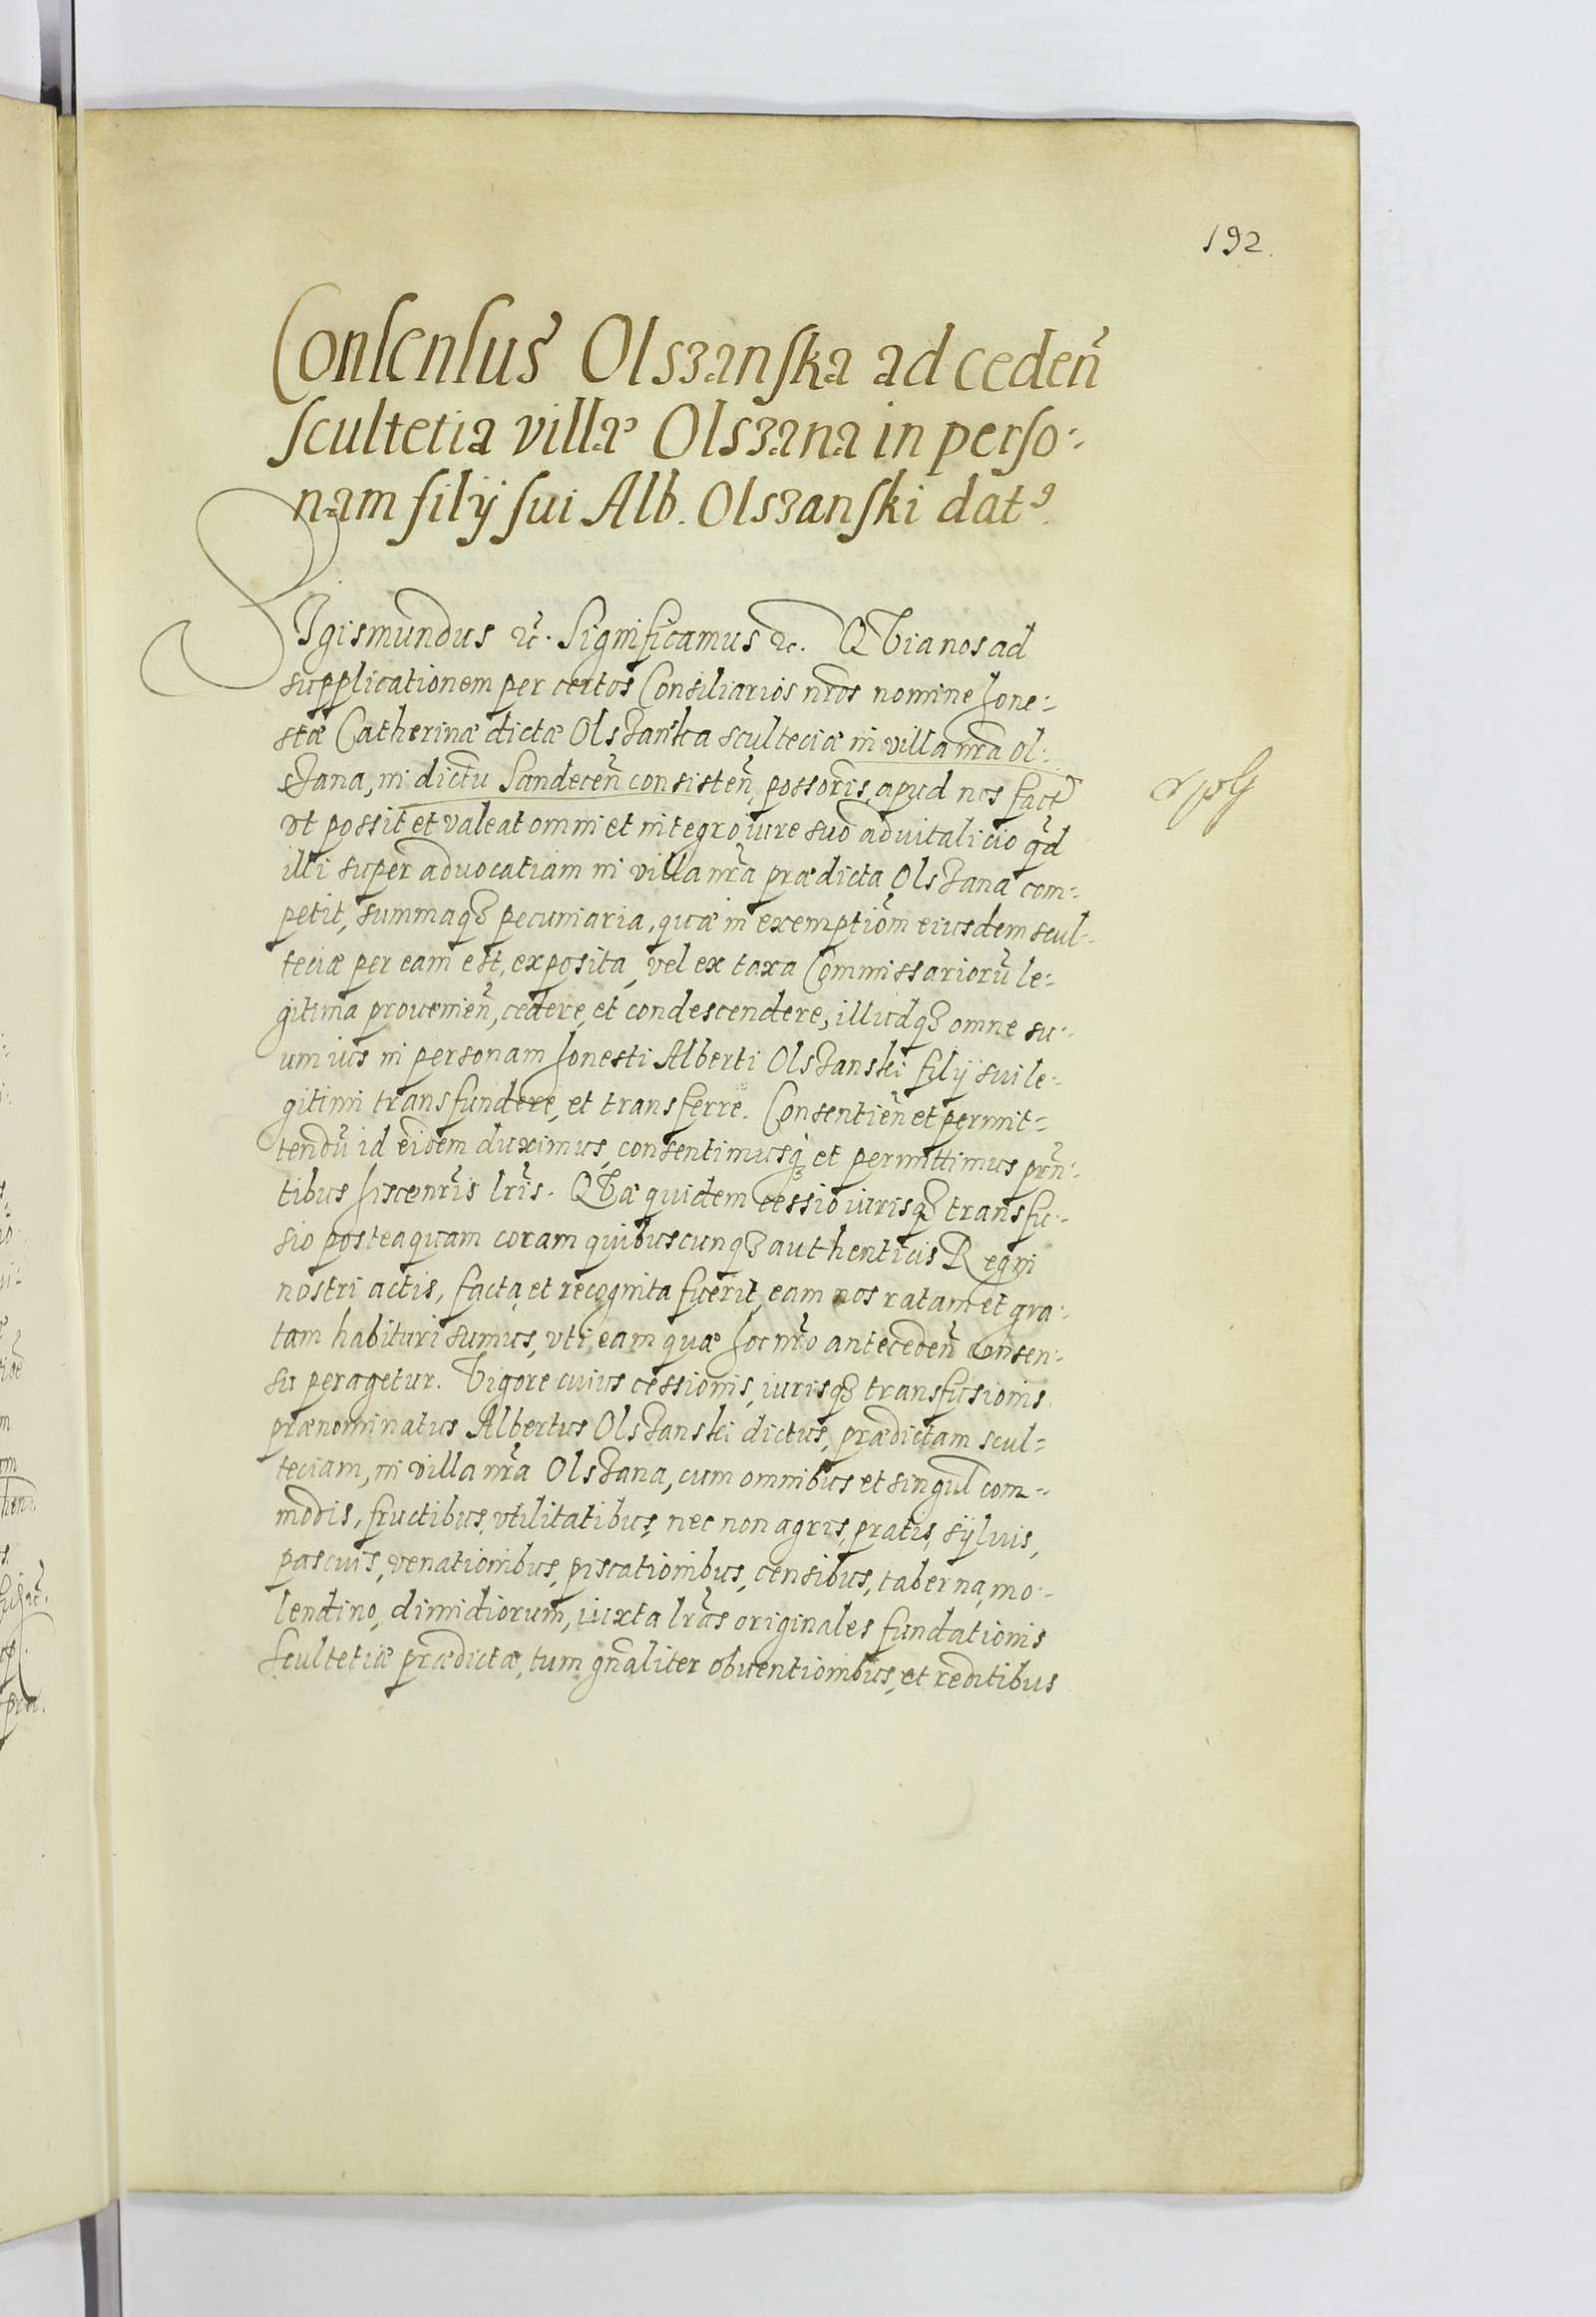 192.
Consensus Olszanska ad ceden̄
scultetia villæ Olszana in perso⸗
nam filij sui Alb. Olszanski datꝰ.
Sigismundus ꝛc̄. Significamus ꝛc. QVia nos ad
supplicationem per certos Consiliarios nr̄os nomine hone⸗
stæ Catherinæ dictæ Olszanska sculteciæ in villa nr̄a Ol⸗
szana, in dictu Sandecen̄ consisten̄, possoris, apud nos fact̄
vt possit et valeat omni et integro iure suo advitalicio qd̄
illi super advocatiam in villa nr̄a prædicta Olszana com⸗
petit, summaqꝫ pecuniaria, quæ in exemptiōm eiusdem scul⸗
teciæ per eam est, exposita, vel ex taxa Commissariorū le⸗
gitima prouenien̄, cedere, et condescendere, illudqꝫ omne su⸗
um ius in personam honesti Alberti Olszanski filij sui le⸗
gitimi transfundere, et transferre. Consentien̄ et permit⸗
tendū id eidem duximus, consentimusqꝫ et permittimus prn̄⸗
tibus hisce nr̄is lr̄is. QVæ quidem cessio iurisqꝫ transfu⸗
sio posteaquam coram quibuscunqꝫ authenticis Regni
nostri actis, facta et recognita fuerit, eam nos ratam et gra⸗
tam habituri sumus, vti eam quæ hoc nr̄o anteceden̄ consen⸗
su peragetur. Vigore cuius cessionis, iurisqꝫ transfusionis
prænominatus Albertus Olszanski dictus, prædictam scul⸗
teciam, in villa nr̄a Olszana, cum omnibus et singul com⸗
modis, fructibus, vtilitatibus, nec non agris, pratis, syluis,
pascuis, venationibus, piscationibus, censibus, taberna, mo⸗
lendino, dimidiorum, iuxta lr̄as originales fundationis
Scultetiæ prædictæ, tum gn̄aliter obuentionibus, et reditibus